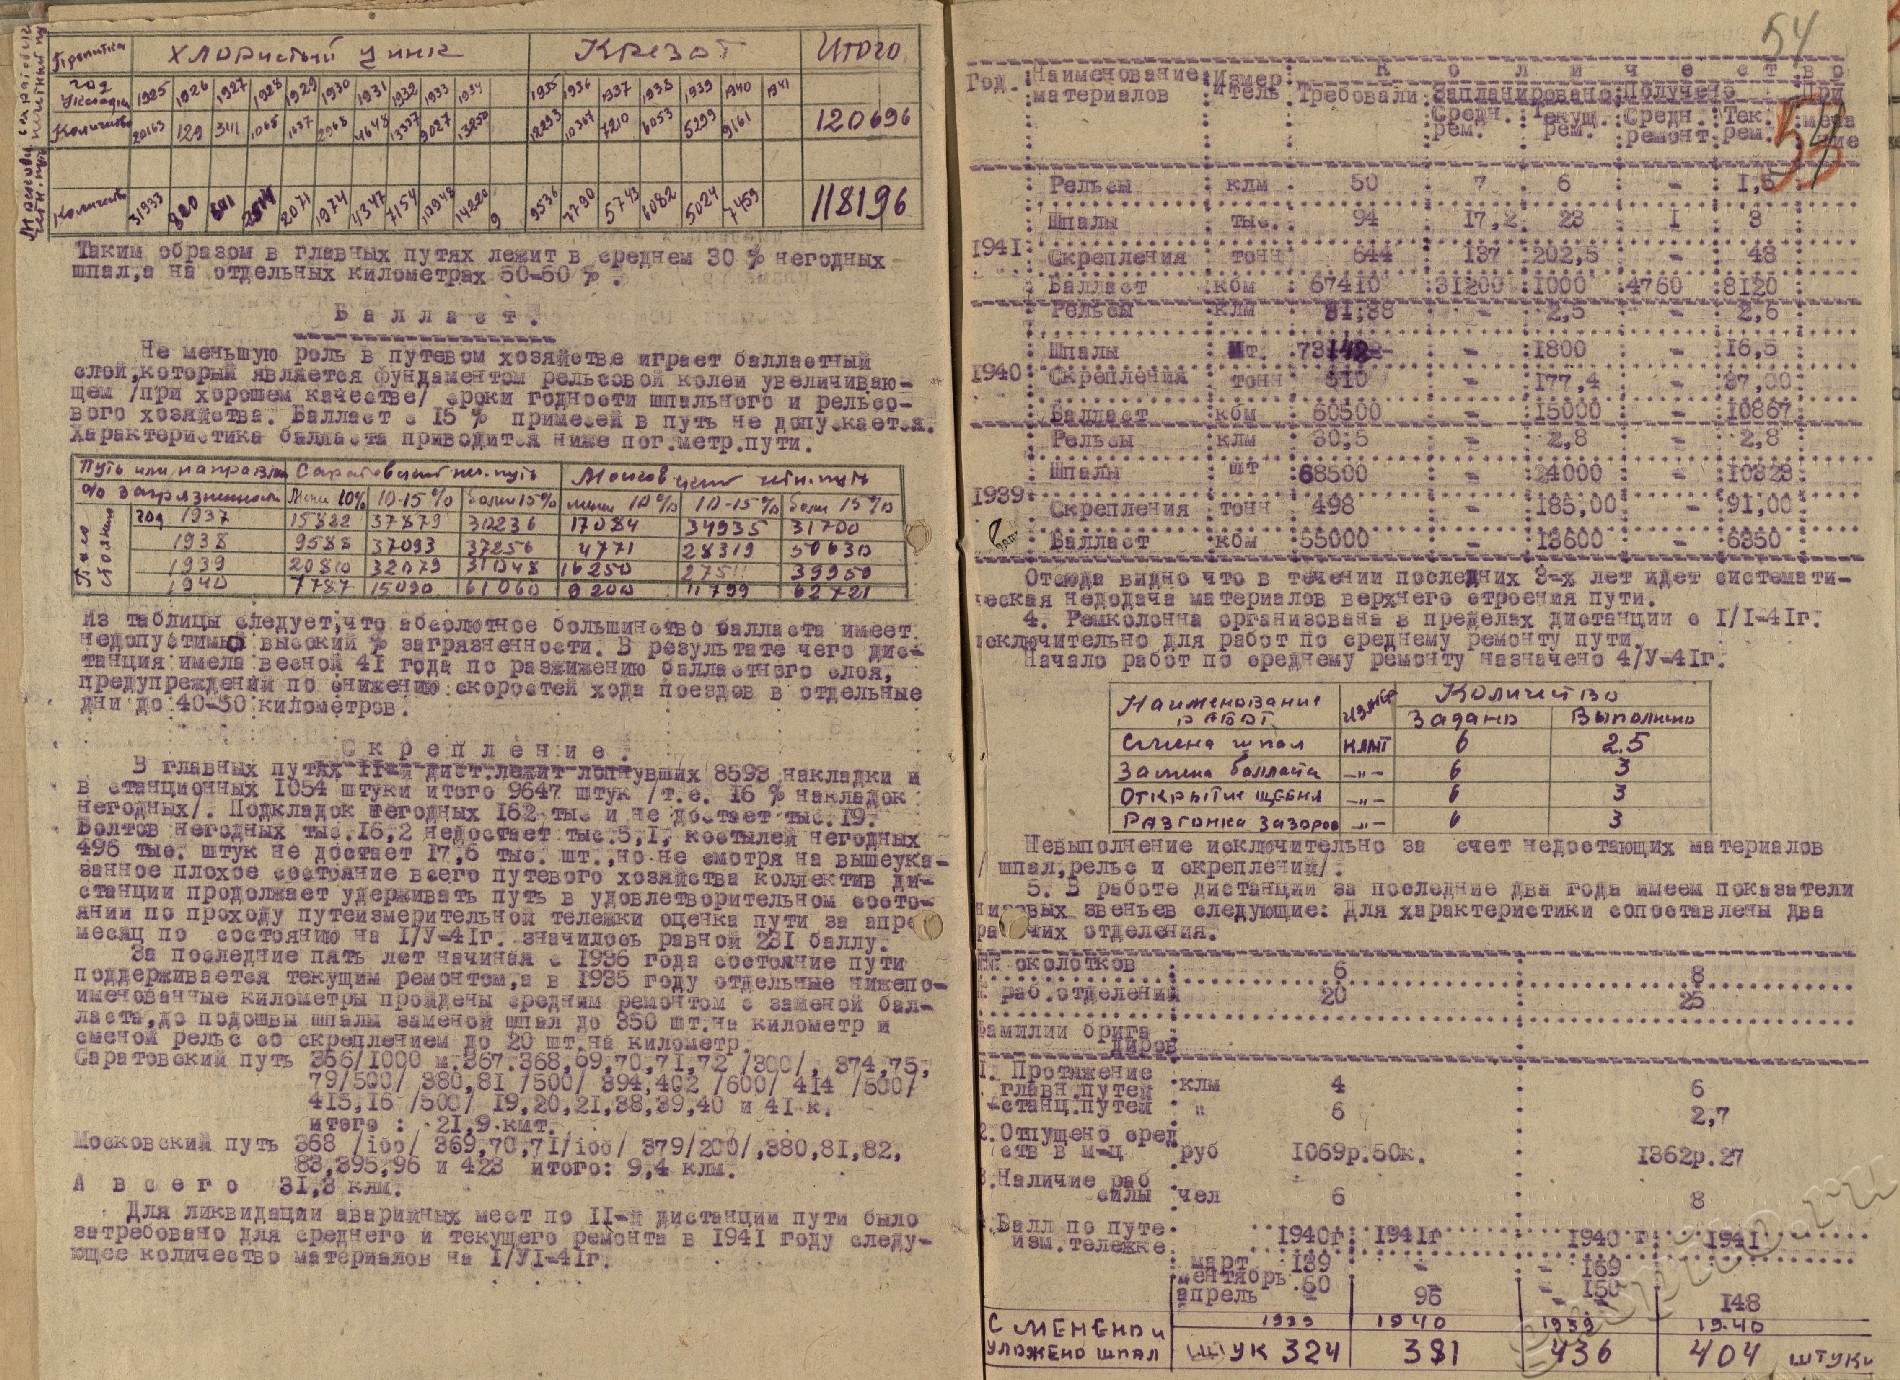 Пропитка Хлористый цинк Крезот Итого
год укладки 1925 1926 1927 1928 1929 1930 1931 1932 1933 1934 1935 1936 1937 1938 1939 1940 1941
Количество 20163 129 341 1065 1137 2968 4648 13337 9027 13250 12293 10367 7210 6053 5299 9161 120696
Количеств 31933 820 2071 1974 4347 7154 14220 9 9536 7790 5743 6082 5024 7459 118196
Таким образом в главных путях лежит в среднем 30 % негодных
шпал,а на отдельных километрах 50-60 % .
Балласт.
Не меньшую роль в путевом хозяйстве играет балластный
слой,который является фундаментом рельсовой колеи увеличиваю-
щем /при хорошем качестве/ сроки годности шпального и рельсо-
вого хозяйства. Балласт с 15 % примесей в путь не допускается.
Характеристика балласта приводится ниже пог.метр.пути.
Путь или направлен Саратовский неч.путь Московский четн.путь
% загрязненности Менее 10% 10-15% более 15% менее 10% 10-15% боле 15%
год 1937 15822 37879 30236 17084 34935 31700
1938 9588 37093 37256 4771 28319 50630
1939 20810 32079 31048 16250 39950
1940 7787 15090 61060 9200 11799 62721
Из таблицы следует,что абсолютное большинство балласта имеет
недопустимо высокий % загрязненности. В результате чего дис-
танция имела весной 41 года по разжижению балластного слоя,
предупреждений по снижению скоростей хода поездов в отдельные
дни до 40-50 километров.
Скрепление.
В главных путях II-й дист.лежит лопнувших 8593 накладки и
в станционных 1054 штуки итого 9647 штук /т.е. 16 % накладок
негодных/. Подкладок негодных 162 тыс и не достает тыс.19.
Болтов негодных тыс.16,2 недостает тыс.5,1, костылей негодных
496 тыс. штук не достает 17,6 тыс. шт.,но не смотря на вышеука-
занное плохое состояние всего путевого хозяйства коллектив ди-
станции продолжает удерживать путь в удовлетворительном состо-
янии по проходу путеизмерительной тележки оценка пути за апре
месяц по состоянию на I/У-41г. значилось равной 231 баллу.
За последние пять лет начиная с 1936 года состояние пути
поддерживается текущим ремонтом,а в 1935 году отдельные нижепо-
именованные километры пройдены средним ремонтом с заменой бал-
ласта,до подошвы шпалы заменой шпал до 350 шт.на километр и
сменой рельс со скреплением до 20 шт.на километр.
Саратовский путь 366/1000 м.367.368,69,70,71,72 /300/, 374,75,
79/500/ 380,81 /500/ 394,402 /600/ 414 /500/
415,16 /500/ 19,20,21,38,39,40 и 41 к.
итого : 21,9 кмт.
Московский путь 368 /100/ 369,70,71/100/ 379/200/,380,81,82,
83,395,96 и 423 итого: 9,4 клм.
А всего 31,3 клм.
Для ликвидации аварийных мест по II-й дистанции пути было
затребовано для среднего и текущего ремонта в 1941 году следу-
ющее количество материалов на I/УI-41г.
54
Год. Наименование материалов Измеритель Количество
Требовали Запланировано Получено Примечание
Средн. рем. Текущ. рем. Средн. ремонт Тек. рем.
1941 Рельсы клм 50 7 6 - 1,5
Шпалы тыс. 94 17,2 23 1 3
Скрепления тонн 644 137 202,5 - 48
Балласт кбм 67410 31200 1000 4760 8120
1940 Рельсы клм 31,38 - 2,5 - 2,6
Шпалы шт. - 1800 - 16,5
Скрепления тонн 510 - 177,4 - 37,00
Балласт кбм 60500 - 15000 - 10867
1939 Рельсы клм 30,5 - 2,8 - 2,8
Шпалы шт 68500 - 24000 - 10328
Скрепления тонн 498 - 185,00 - 91,00
Балласт кбм 55000 - 13600 - 6350
Отсюда видно что в течении последних 3-х лет идет системати-
ческая недодача материалов верхнего строения пути.
4. Ремколонна организована в пределах дистанции с I/I-41г.
исключительно для работ по среднему ремонту пути.
Начало работ по среднему ремонту назначено 4/У-41г.
Наименование работ Измер Количество
Задано Выполнено
Смена шпал клмт 6 2.5
Замена балласта -"- 6 3
Открытие щебня -"- 6 3
Разгонка зазоров -"- 6 3
Невыполнение исключительно за счет недостающих материалов
/ шпал,рельс и скреплений/.
5. В работе дистанции за последние два года имеем показатели
низовых звеньев следующие: Для характеристики сопоставлены два
рабочих отделения.
околотков 6 8
раб.отделений 20 25
Фамилии бригадиров
1. Протяжение
главн.путей клм 4 6
станц.путей " 6 2,7
2.Отпущено сред
ств в м-ц руб 1069р.50к. 1362р.27
3.Наличие раб
силы чел 6 8
4.Балл по путе-
изм.тележке 1940г 1941г 1940 г 1941
март 139 - - 169
сентябрь 60 - 150
апрель - 96 - 148
Сменено и 1939 1940 1939 1940
уложено шпал штук 324 381 436 404 штуки